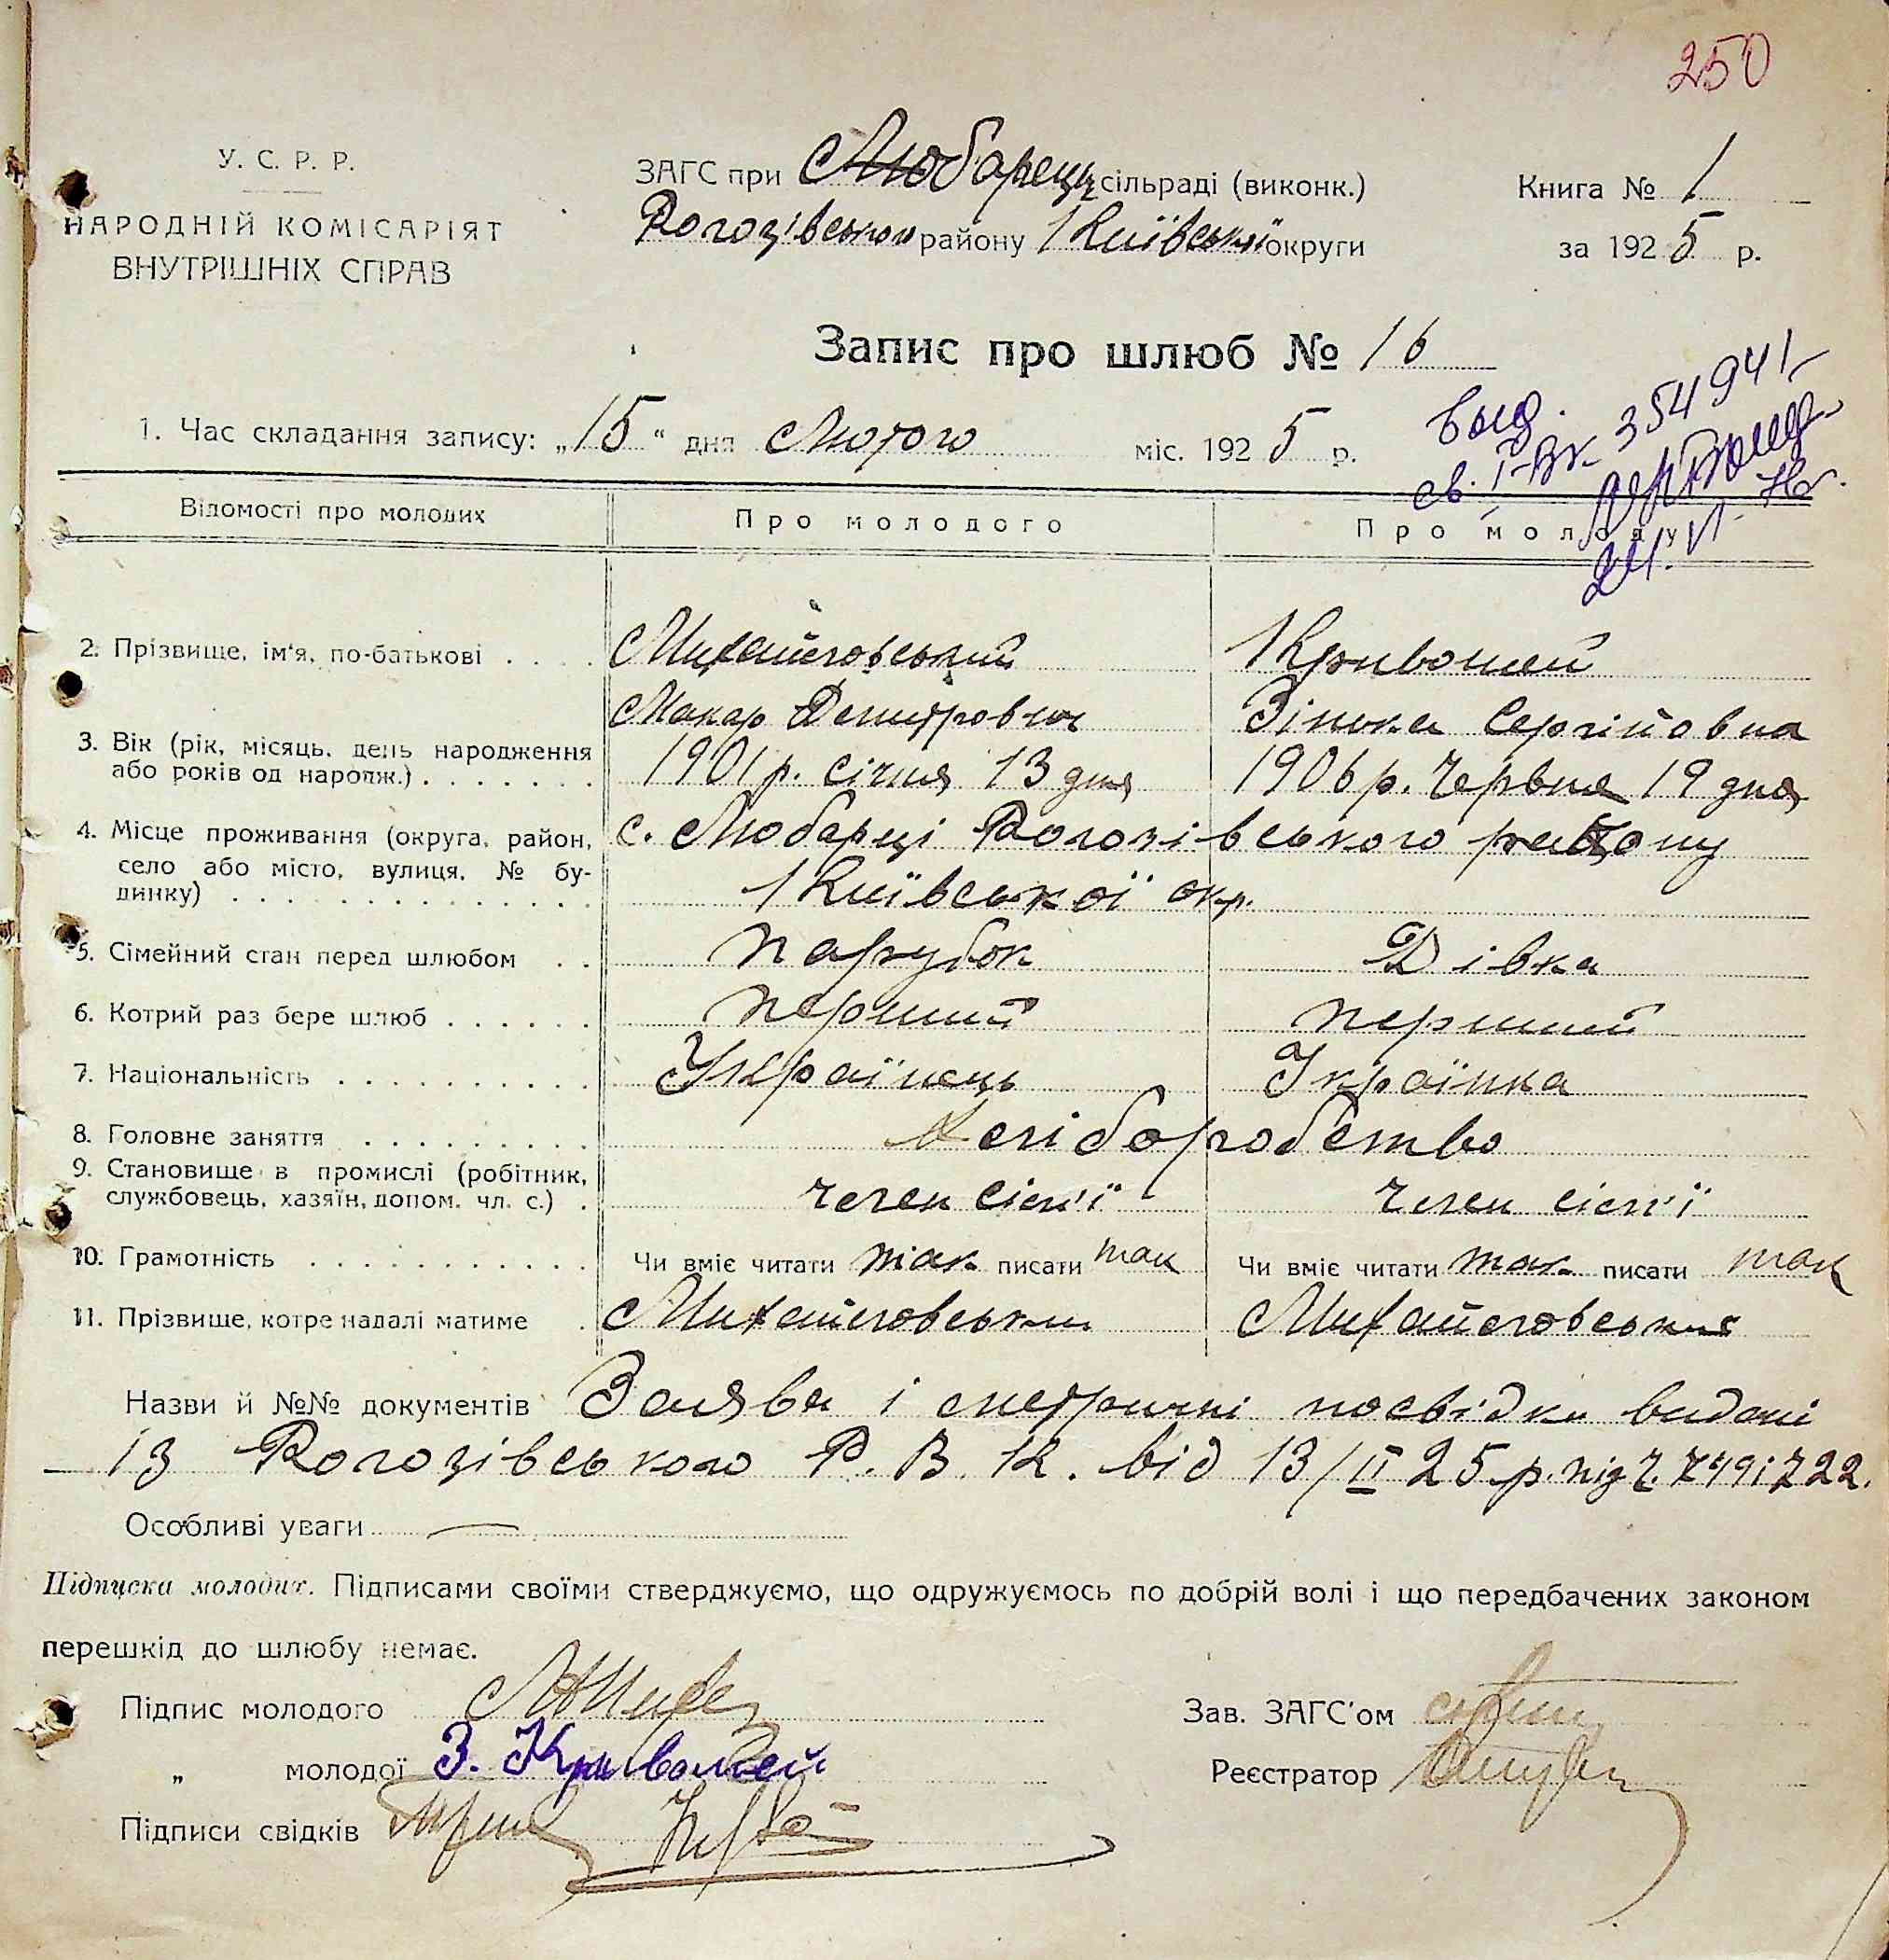 250
У. С. Р. Р.
НАРОДНІЙ КОМІСАРІЯТ
ВНУТРІШНІХ СПРАВ
ЗАГС при Любарецьк сільраді (виконк.)
Рогозівського району Київської округи
Книга № 1
за 1925 р.
Запис про шлюб № 16
1. Час складання запису: „15“ дня Лютого міс. 1925 р.
св. 354941
Відомості про молодих
Про молодого
Про молоду
2. Прізвище, ім'я, по-батькові . . . . Михайловський Кривошей
Макар Демитрович Зінька Сергійовна
3. Вік (рік, місяць, день народження 1901 р. січня 13 дня 1906 р. Червня 19 дня
або років од народж.) . . . . . . .
4. Місце проживання (округа, район, с. Любарці Рогозівського району
село або місто, вулиця, № бу-
динку) . . . . . . . . . . . . . . . Київської окр.
5. Сімейний стан перед шлюбом . . парубок Дівка
6. Котрий раз бере шлюб . . . . . . перший перший
7. Національність . . . . . . . . . . . Українець Українка
8. Головне заняття . . . . . . . . . . Хліборобство
9. Становище в промислі (робітник,
службовець, хазяїн, допом. чл. с.) . член сім'ї член сім'ї
10. Грамотність . . . . . . . . . . . . Чи вміє читати так писати так Чи вміє читати так писати так
11. Прізвище, котре надалі матиме . Михайловський Михайловська
Назви й №№ документів Заява і метричні посвідки видані
із Рогозівського Р. В. К. від 13/II 25 р. під
Особливі уваги —
Підписка молодих. Підписами своїми стверджуємо, що одружуємось по добрій волі і що передбачених законом
перешкід до шлюбу немає.
Підпис молодого
„ молодої З. Кривошей
Підписи свідків
Зав. ЗАГС'ом
Реєстратор